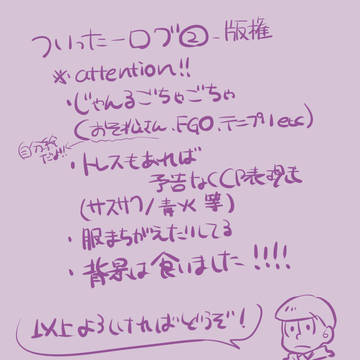 ついったーログ②-版権
※attention!!
・じゃんるごちゃごちゃ
(おそ松さん、FGO、テニプリetc)
・トレスもあれば
予告なくCP表現も
(サスサク/青火 等)
・服まちがえたりしてる
・背景は食いました!!!!
以上よろしければどうぞ!